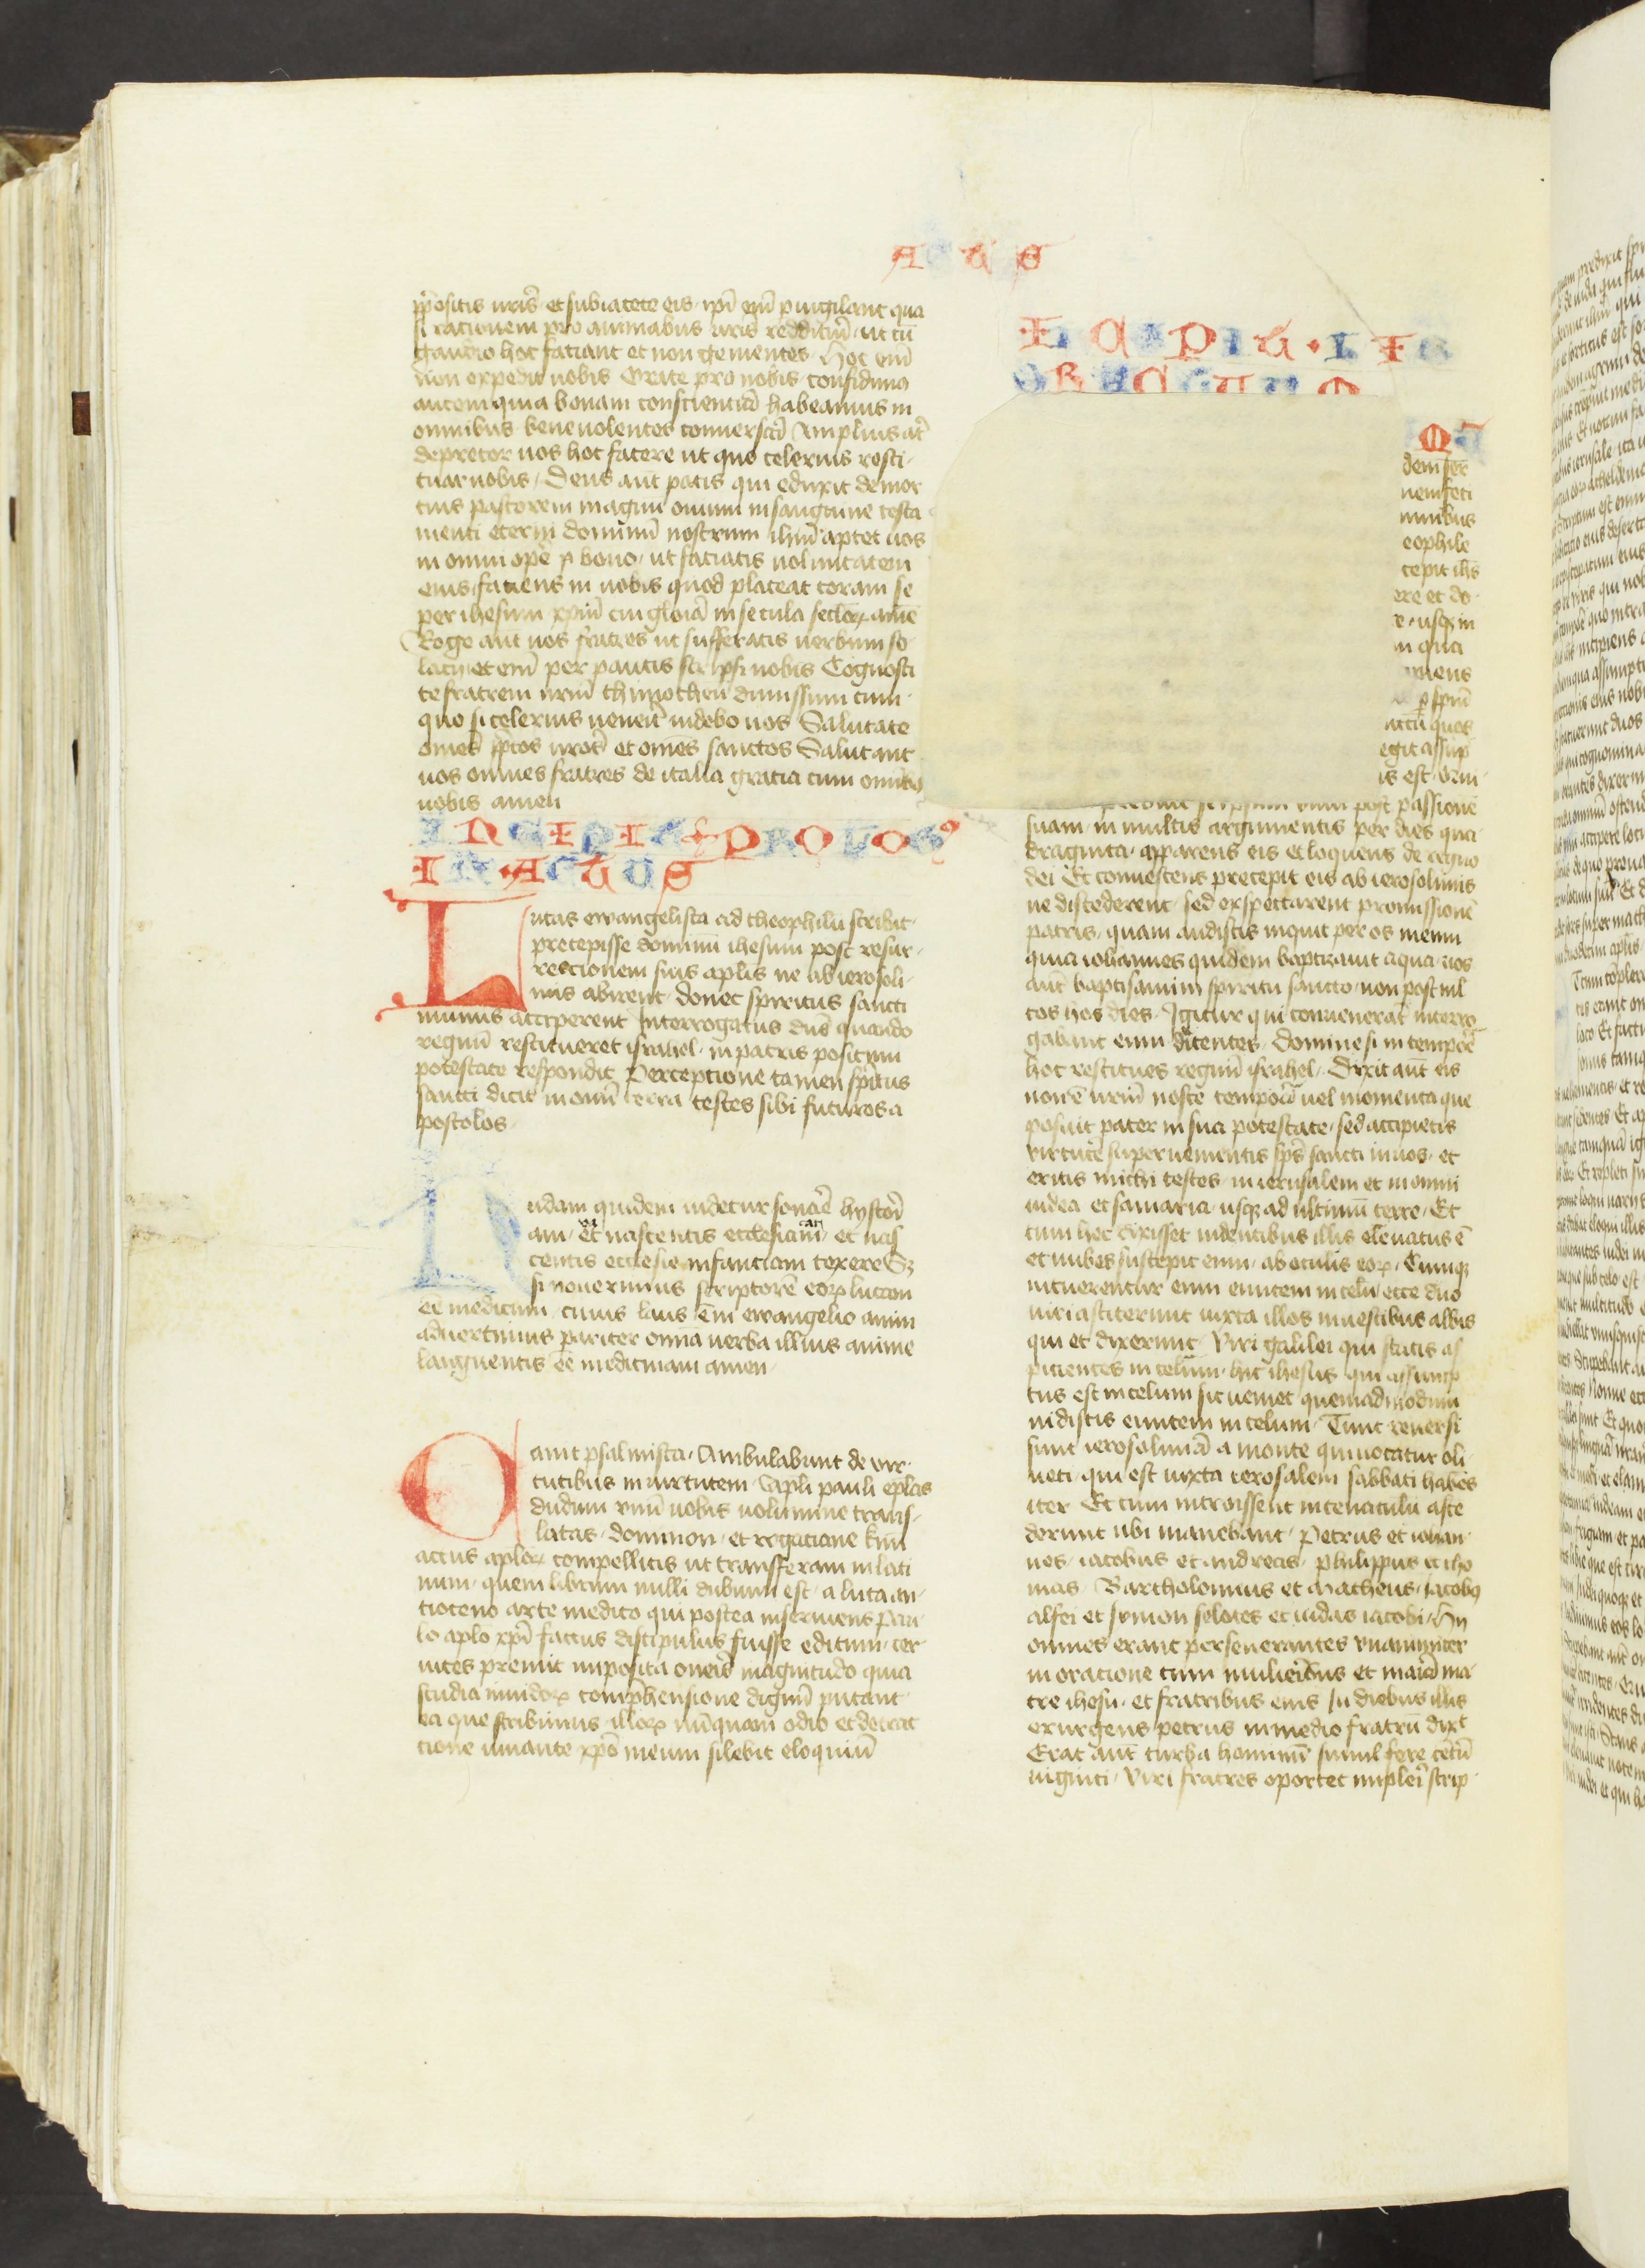 ACTUS
prepositis vris et subiacete eis ipi eni pvigilant qua
si rationem pro animabus vris reddituri ut cu
gaudio hoc faciant et non gementes Hoc eni
non expedit vobis Orate pro nobis confidimus
autem quia bonam conscientia habeamus in
omnibus bene volentes conversari Amplius at
deprecor vos hoc facere ut quo celerius resti
tuar vobis Deus aut pacis qui eduxit de mor
tuis pastorem magnu ovium in sanguine testa
menti eterni dominum nostrum ihm aptet vos
in omni ope bono ut faciatis voluntatem
eius faciens in vobis quod placeat coram se
per ihesum xpm cui gloia in secula seclor ame
Rogo aut vos fratres ut sufferatis verbum so
lacij et eni per paucis scripsi vobis Cognosci
te fratrem nrm thimotheu dimissum cum
quo si celerius venerit videbo vos Salutate
omes ppositos vros et omes sanctos Salutant
vos omnes fratres de italia gratia cum omibus
vobis amen
INCIPIT PROLOG9
IN ACTUS
Lucas ewangelista ad theophilu scribit
precepisse dominu ihesum post resur
rectionem suis aplis ne ab ierosoli
mis abirent donec spiritus sancti
munus acciperent Interrogatus dns quando
regnu restitueret israhel in patris positum
potestate respondit Perceptione tamen spiritus
sancti dicit in omni terra testes sibi futuros a
postolos
Nudam quidem videtur sonare hystori
am et nascentis ecclesiam et nas
centis ecclesie infantiam texere Sz
si noverimus scriptore eorum lucam
ee medicum cuius laus e in ewangelio anim
advertimus pariter omnia verba illius anime
languentis ee medicinam amen
Canit psalmista Ambulabunt de vir
tutibus in virtutem Apli pauli eplas
dudum vnu vobis volumine trans
latas domnion et rogatiane kmi
actus aplor compellitis ut transferam in lati
num quem librum nulli dubium est a luca an
tioceno arte medico qui postea inserviens pau
lo aplo xpi factus discipulus fuisse editum cer
vices premit imposita oneris magnitudo quia
studia invidor comprehensione dignu putant
ea que scribimus illor nuquam odio et detrac
tione iuvante xpo meum silebit eloquiu
INCAPIT LIB
OR ACTUUM
dem ser
nem feci
mnibus
eophile
cepit ihs
ere et do
e usq in
m qua
piens
p spm
nctu quos
egit assup
is est Qui
seipsum vivu post passione
suam in multis argumentis per dies qua
draginta apparens eis et loquens de regno
dei Et convescens precepit eis ab ierosolimis
ne discederent sed exspectarent promissione
patris quam audistis inquit per os meum
quia iohannes quidem baptizavit aqua vos
aut baptisamini spiritu sancto non post ml
tos hos dies Igitur qui convenerat interro
gabant eum dicentes Domine si in tempore
hoc restitues regnu israhel Dixit aut eis
non e vrm nosce tempora vel momenta que
posuit pater in sua potestate sed accipietis
virtute supervenientis sps sancti in vos et
eritis michi testes in ierusalem et in omni
iudea et samaria usq ad ultimu terre Et
cum hec dixisset videntibus illis elevatus e
et nubes suscepit eum ab oculis eor Cumq
intuerentur eum euntem in celu ecce duo
viri astiterunt iuxta illos in vestibus albis
qui et dixerunt Viri galilei qui statis as
picientes in celum hic ihesus qui assump
tus est in celum sic veniet quemadmodum
vidistis euntem in celum Tunc reversi
sunt ierosolima a monte qui vocatur oli
veti qui est iuxta ierosalem sabbati habes
iter Et cum introissent in cenaculu asce
derunt ubi manebant Petrus et iohan
nes iacobus et andreas philippus et tho
mas Bartholomius et matheus iacobus
alfei et symon selotes et iudas iacobi Hii
omnes erant perseverantes vnanimiter
in oracione cum mulieribus et maria ma
tre ihesu et fratribus eius In diebus illis
exurgens petrus in medio fratru dixt
Erat aut turba hominu simul fere cetu
viginti Viri fratres oportet impleri scrip